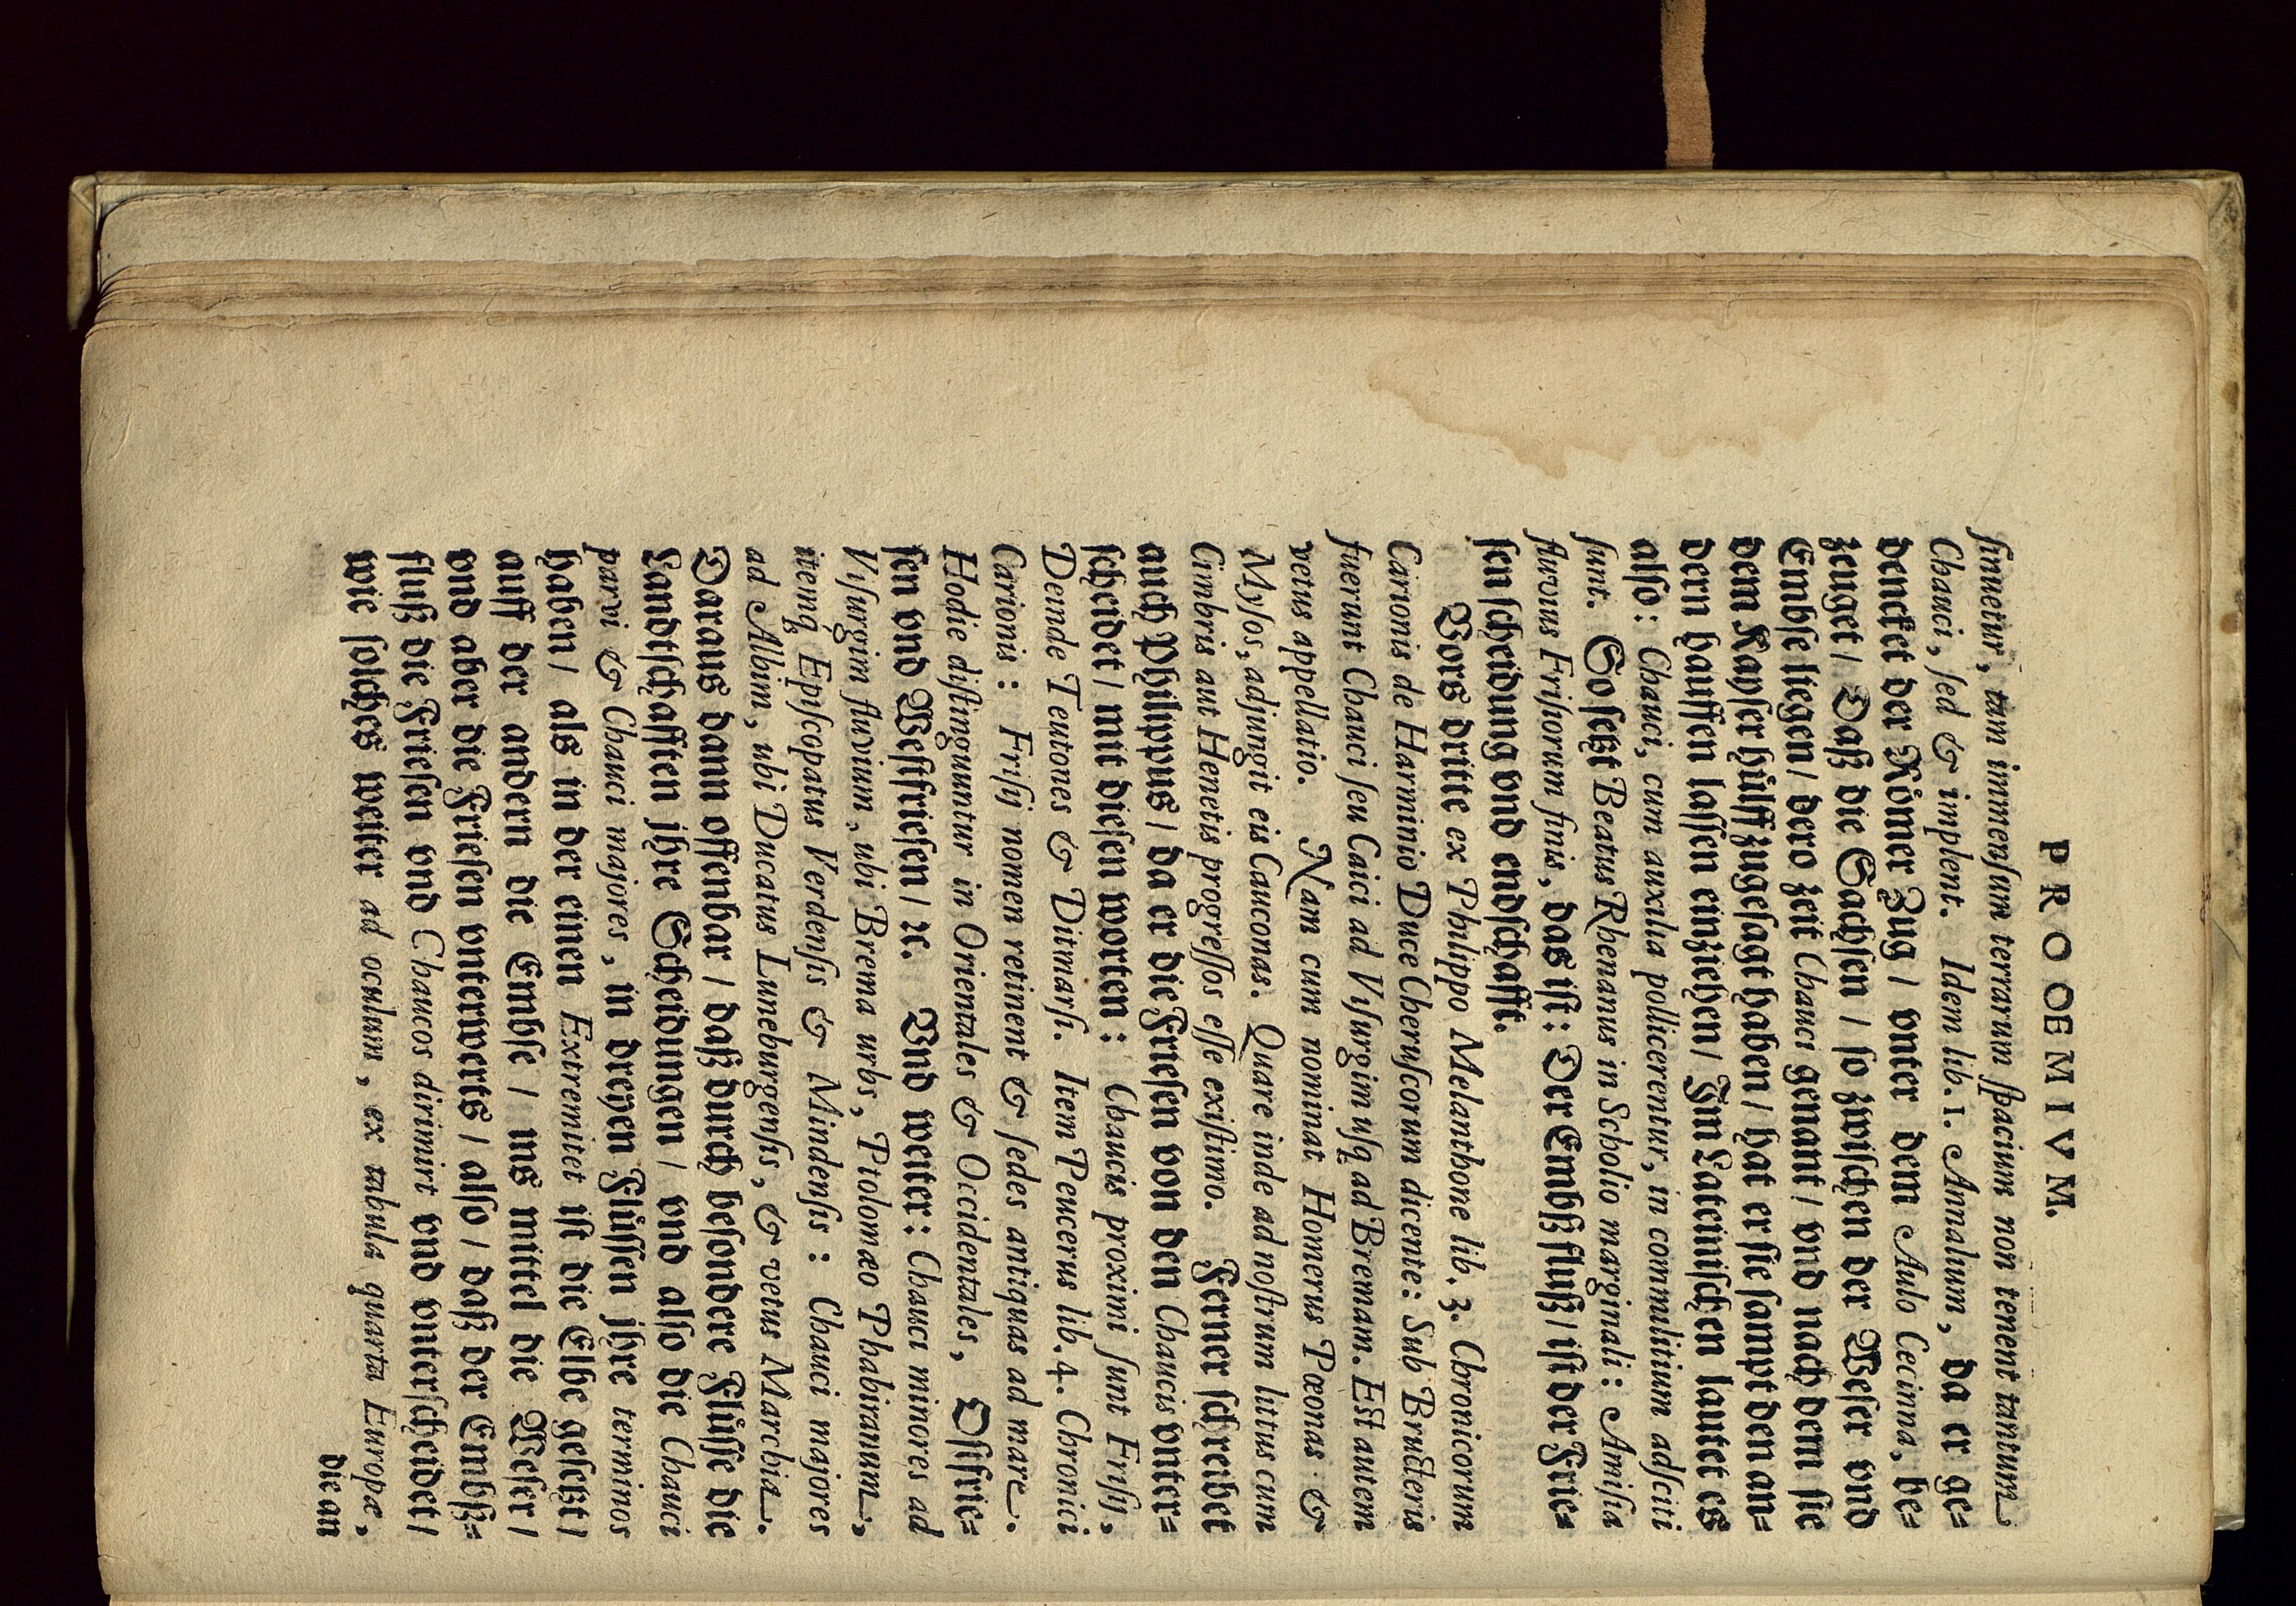 PROOEMIVM.
ſinuetur, tam immenſum terrarum ſpacium non tenent tantum
Chauci, ſed & implent. Idem lib. 1. Annalium, da er ge=
dencket der Römer Zug / vnter dem Aulo Cecinna, be=
zeuget / Daß die Sachſen / ſo zwiſchen der Weſer vnd
Embſe liegen / dero zeit Chauci genant / vnd nach dem ſie
dem Kayſer hülff zugeſagt haben / hat er ſie ſampt den an=
dern hauffen laſſen einziehen / Im Lateiniſchen lautet es
alſo: Chauci, cum auxilia pollicerentur, in commilitium adſciti
ſunt. So ſetzt Beatus Rhenanus in Scholio marginali: Amiſia
fluvius Friſiorum finis, das iſt: Der Embß fluß / iſt der Frie=
ſen ſcheidung vnd endſchafft.
Vors dritte ex Philippo Melanthone lib. 3. Chronicorum
Carionis de Harminio Duce Cheruſcorum dicente: Sub Bructeris
fuerunt Chauci ſeu Caici ad Viſurgim uſq; ad Bremam. Eſt autem
vetus appellatio. Nam cum nominat Homerus Pœonas &
Myſos, adjungit eis Cauconas. Quare inde ad noſtrum litus cum
Cimbris aut Henetis progreſſos eſſe exiſtimo. Ferner ſchreibet
auch Philippus / da er die Frieſen von den Chaucis vnter=
ſcheidet / mit dieſen worten: Chaucis proximi ſunt Friſij,
Deinde Teutones & Ditmarſi. Item Peucerus lib. 4. Chronici
Carionis: Friſij nomen retinent & ſedes antiquas ad mare.
Hodie diſtinguuntur in Orientales & Occidentales, Oſtfrie=
ſen vnd Weſtfrieſen / ꝛc. Vnd weiter: Chauci minores ad
Viſurgim fluvium, ubi Brema urbs, Ptolomæo Phabiranum,
itemq; Epiſcopatus Verdenſis & Mindenſis: Chauci majores
ad Albim, ubi Ducatus Luneburgenſis, & vetus Marchia.
Daraus dann offenbar / daß durch beſondere Flüſſe die
Landtſchafften jhre Scheidungen / vnd alſo die Chauci
parvi & Chauci majores, in dreyen Flüſſen jhre terminos
haben / als in der einen Extremitet iſt die Elbe geſetzt /
auff der andern die Embſe / ins mittel die Weſer /
vnd aber die Frieſen vnterwerts / alſo / daß der Embß=
fluß die Frieſen vnd Chaucos dirimirt vnd vnterſcheidet /
wie ſolches weiter ad oculum, ex tabula quarta Europæ,
die an